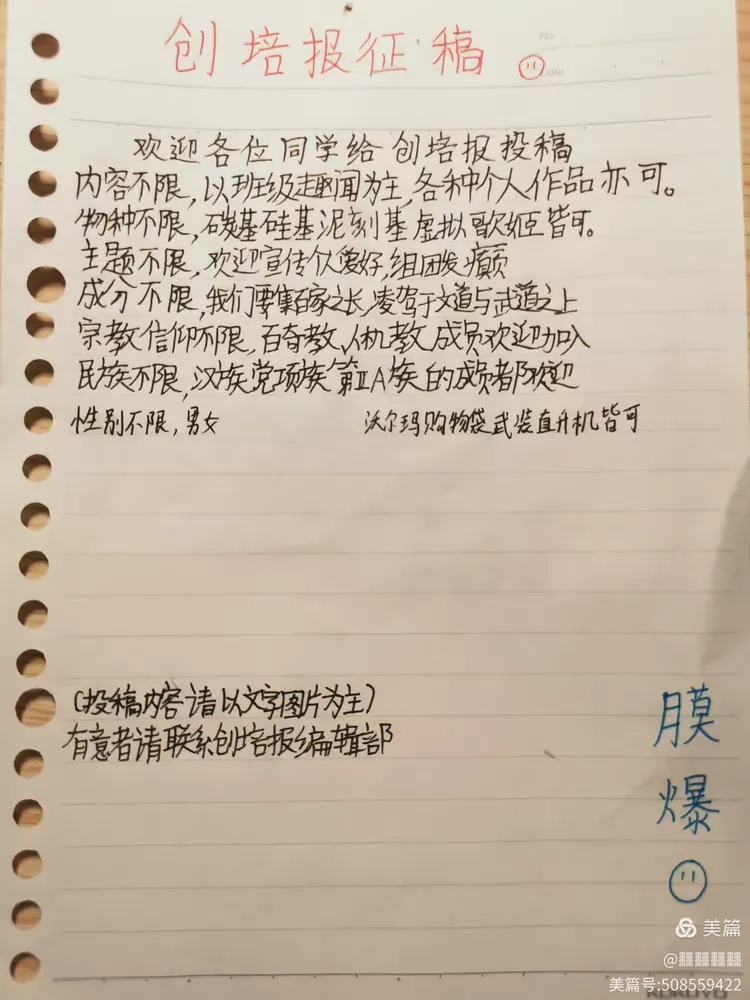 创培报征稿
No
Date
欢迎各位同学给创培报投稿
内容不限,以班级趣闻为主,各种个人作品亦可。
物种不限,碳基硅基泥刻基虚拟歌姬皆可。
主题不限,欢迎宣传个人爱好,组团发癫
成分不限,我们要集百家之长,凌驾于文道与武道之上
宗教信仰不限,百奇教人机教成员欢迎加入
民族不限,汉族党项族第ⅡA族的成员都欢迎
性别不限,男女 沃尔玛购物袋武装直升机皆可
(投稿内容请以文字图片为主)
有意者请联系创培报编辑部
膜
爆
美篇
美篇号:508559422